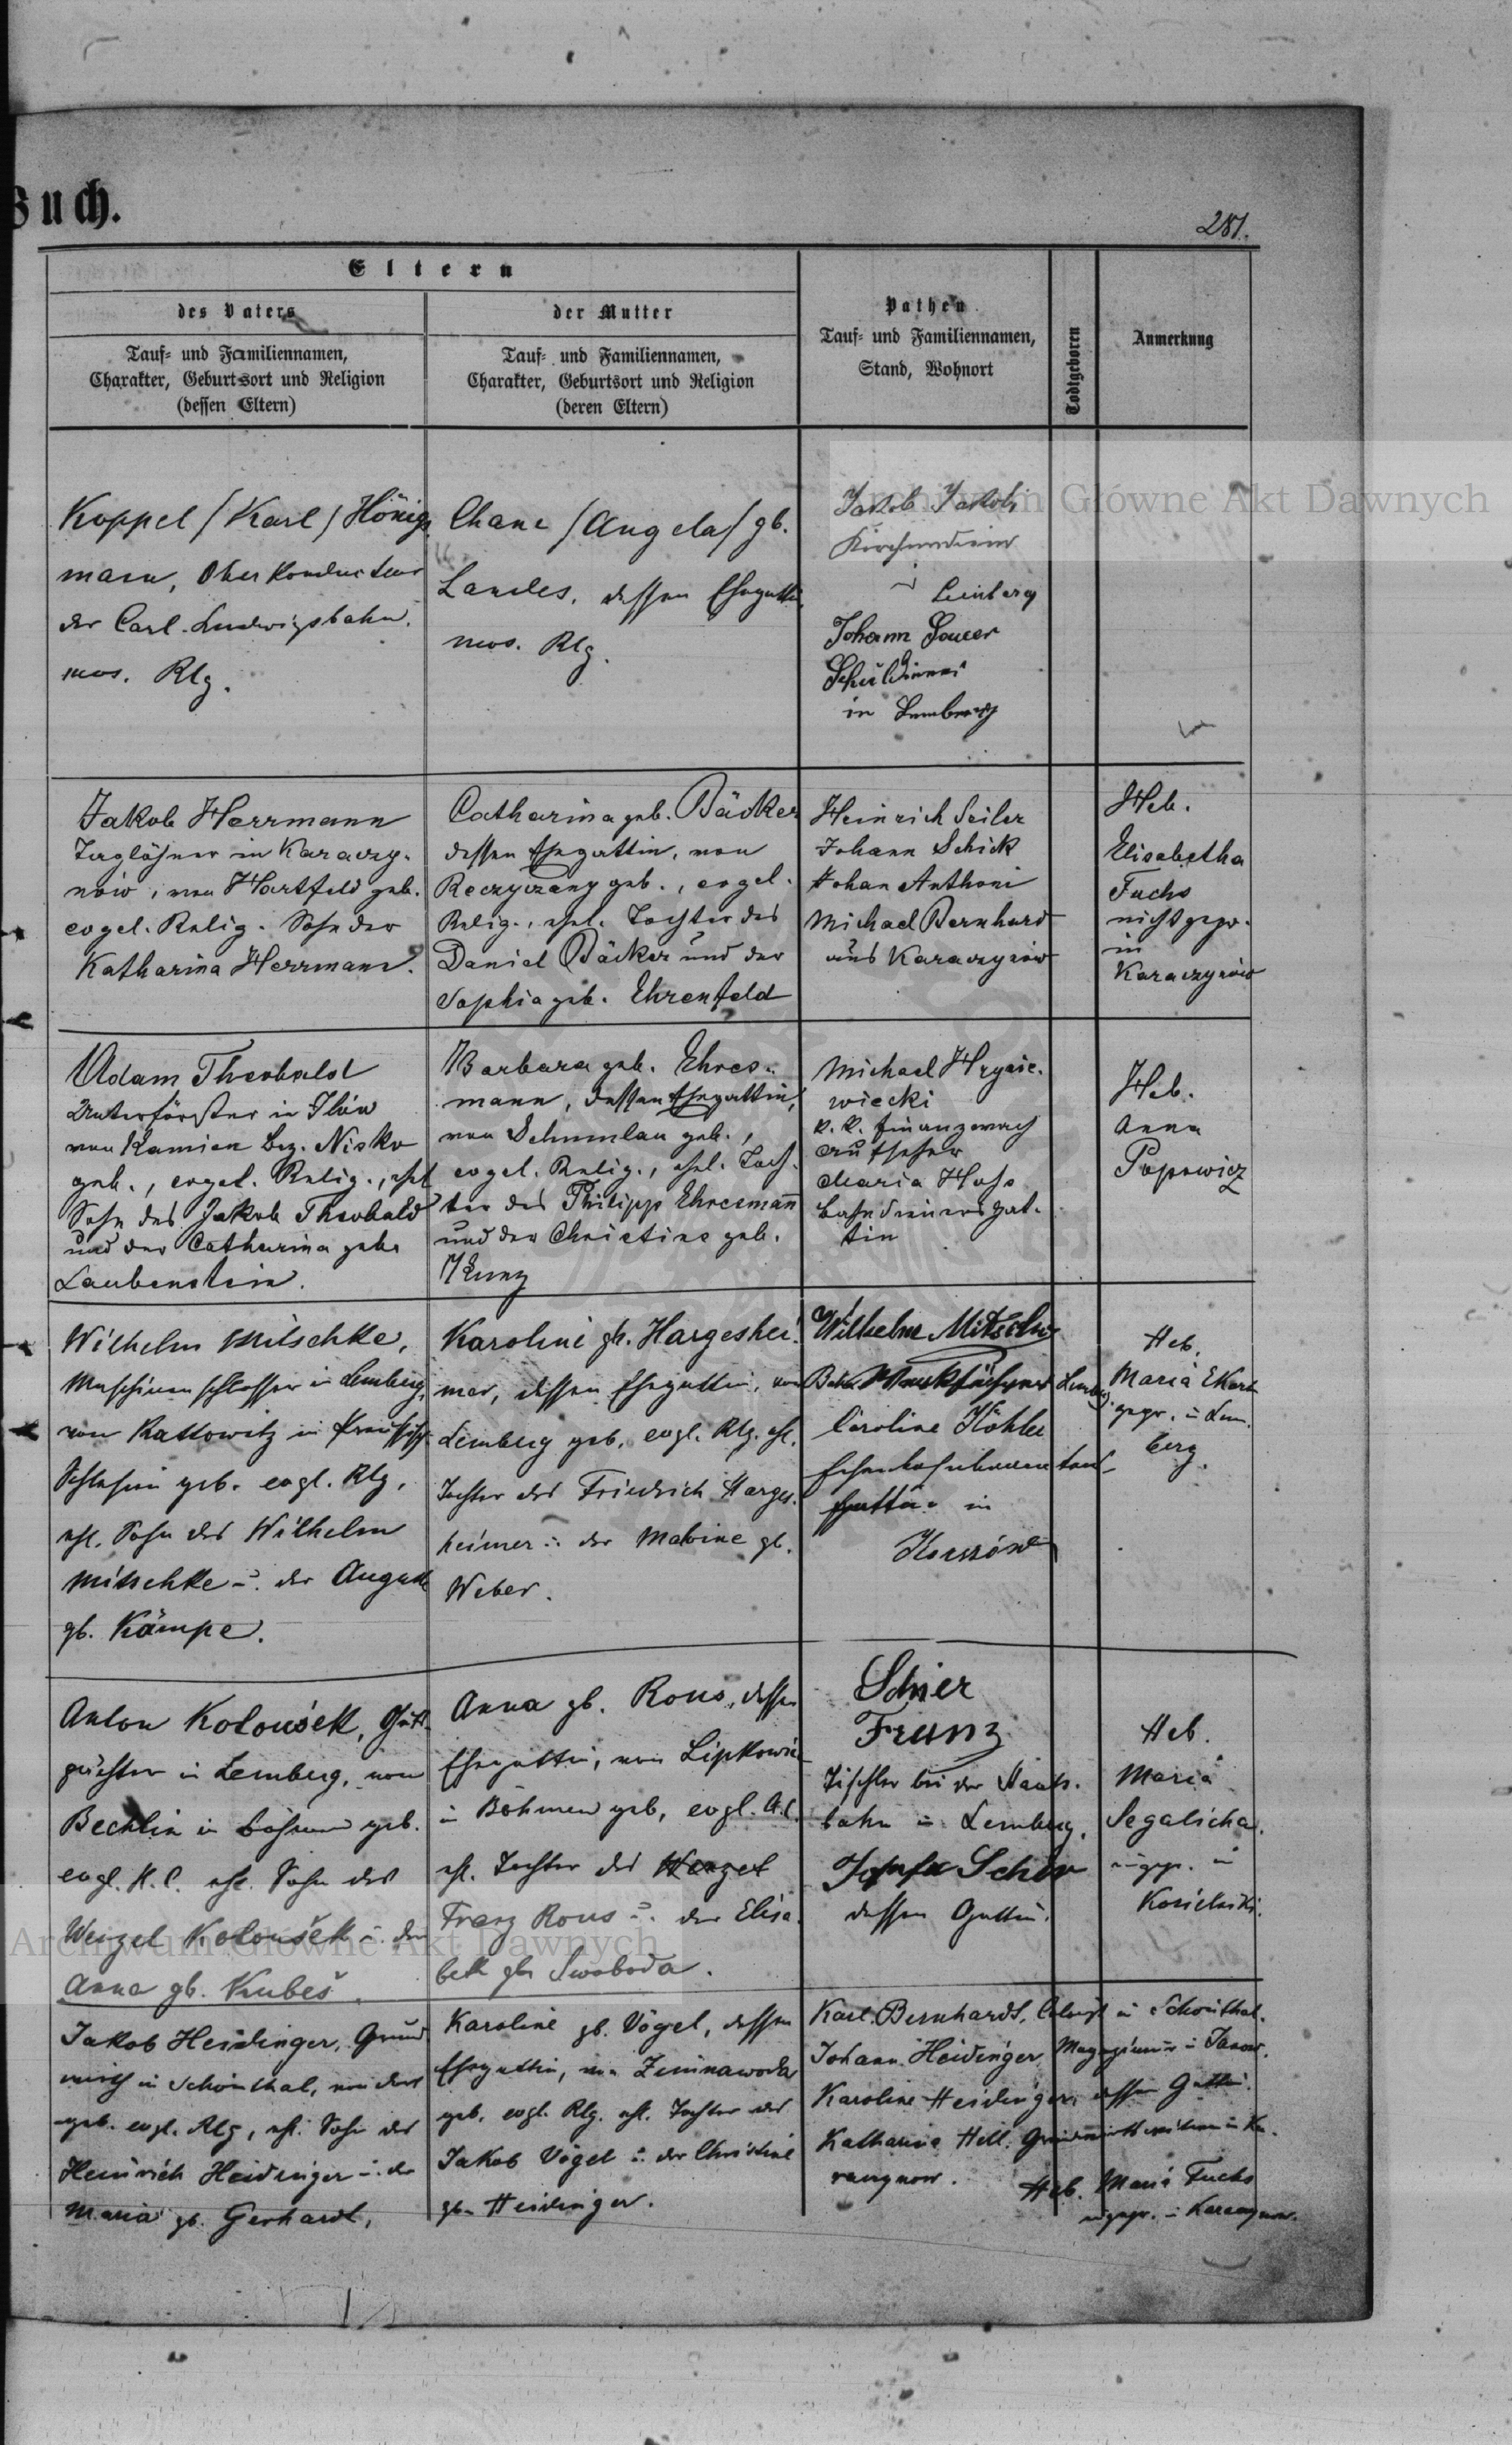 Buch.
281.
Eltern
des Vaters
der Mutter
Tauf- und Familiennamen,
Charakter, Geburtsort und Religion
(dessen Eltern)
Tauf- und Familiennamen,
Charakter, Geburtsort und Religion
(deren Eltern)
Pathen
Tauf- und Familiennamen,
Stand, Wohnort
Todtgeboren
Anmerkung
Koppel /Karl/ Hönigs
mann, Oberkonducteur
der Carl-Ludwigsbahn.
mos. Rlg.
Chane /Angela/ gb.
Landes, dessen Ehegattin,
mos. Rlg.
Jakob Jakobi
Kirchendiener
Lemberg
Johann
in Lemberg
Jakob Herrmann
Taglöhner in Karaczy-
nów, von Hartfeld geb.
evgel. Relig. Sohn der
Katharina Herrmann.
Catharina geb. Bäcker
dessen Ehegattin, von
Reczyczany geb., evgel.
Relig., ehel. Tochter des
Daniel Bäcker und der
Sophia geb. Ehrenfeld
Heinrich Seiler
Johann Schick
Johan Anthoni
Michael Bernhard
aus Karaczynów
Heb.
Elisabetha
Fuchs
nicht gepr.
in
Karaczynów
Adam Theobald
Unterförster in Jlów
von Kamien Bez. Nisko
geb., evgel. Relig., ehel
Sohn des Jakob Theobald
und der Catharina geb.
Laubenstein.
Barbara geb. Ehres-
mann, dessen Ehegattin,
von Schumlau geb.,
evgel. Relig., ehel. Toch-
ter des Philipp Ehresmann
und der Christine geb.
Kunz
Michael Hryniewiecki
k. k. Finanzwach
aufseher
Maria Hoss
bahndienersgat-
tin
Heb.
Anna
Popowicz
Wilhelm Mitschke,
Maschinenschlosser in Lemberg,
von Kattowitz in Preussisch
Schlesien geb. evgl. Rlg.
ehl. Sohn des Wilhelm
Mitschke u. der Auguste
gb. Kämpe.
Karoline gb. Hargeshei-
mer, dessen Ehegattin, von
Lemberg geb. evgl. Rlg. ehl.
Tochter des Friedrich Harges-
heimer u. der Malvine gb.
Weber.
Wilhelm Mitschke
Werkführer Lemberg
Caroline Köhler
gattin in
Heb.
Maria Ekert
gepr. in Lem-
berg.
Anton Kolouśek, Guts-
pächter in Lemberg, von
Bechlin in Böhmen geb.
evgl. H.C. ehl. Sohn des
Wenzel Koloušek u. der
Anna gb. Kubeš.
Anna gb. Rous, dessen
Ehegattin, von
in Böhmen geb, evgl. A.C.
ehl. Tochter des Wenzel
Franz Rous u. der Elisa-
beth gb. Swoboda.
Schier
Franz
Tischler bei der Staats-
bahn in Lemberg.
Josefa Schier
dessen Gattin.
Heb.
Maria
Segalicha.
ungepr. in
Jakob Heidinger, Grund-
wirth in Schönthal, von dort
geb. evgl. Rlg, ehl. Sohn des
Heinrich Heidinger u. der
Maria gb. Gerhardt,
Karoline gb. Vögel, dessen
Ehegattin, von Zimnawoda
geb. evgl. Rlg. ehl. Tochter des
Jakob Vögel u. der Christine
gb. Heidinger.
Karl Bernhardt, Colonist in Schönthal.
Johann Heidinger, Magazineur in Janow.
Karoline Heidinger, dessen Gattin.
Katharina Hell, Grundwirthswitwe in Ka-
raczynow.
Heb. Maria Fuchs
ungepr. in Karaczynow.
Archiwum Główne Akt Dawnych
Archiwum Główne Akt Dawnych